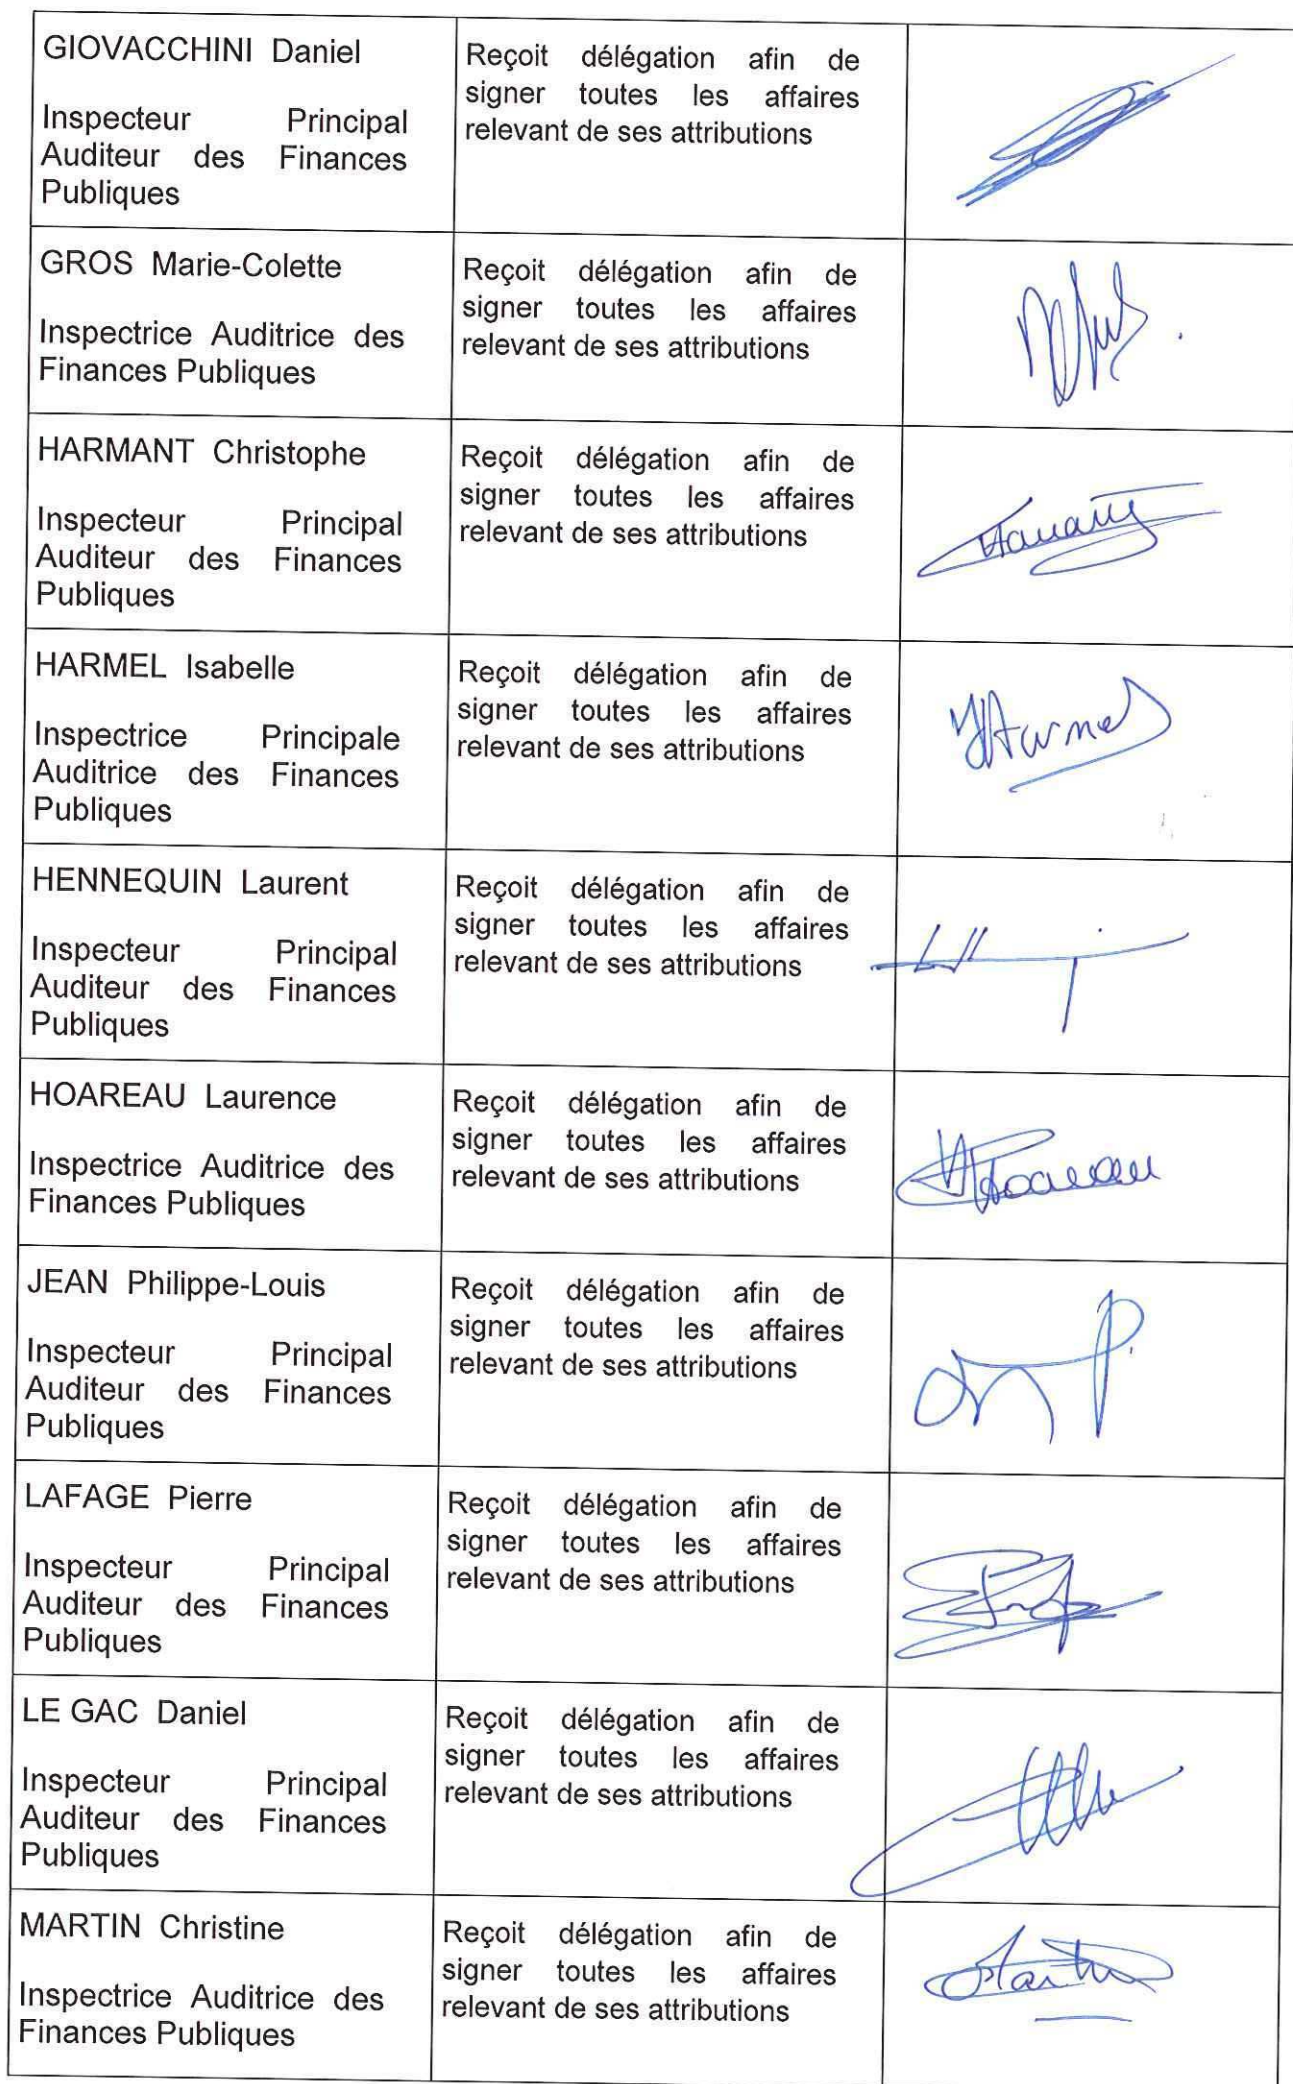 GIOVACCHINI Daniel
Inspecteur Principal
Auditeur des Finances
Publiques
Reçoit délégation afin de
signer toutes les affaires
relevant de ses attributions
GROS Marie-Colette
Inspectrice Auditrice des
Finances Publiques
Reçoit délégation afin de
signer toutes les affaires
relevant de ses attributions
HARMANT Christophe
Inspecteur Principal
Auditeur des Finances
Publiques
Reçoit délégation afin de
signer toutes les affaires
relevant de ses attributions
HARMEL Isabelle
Inspectrice Principale
Auditrice des Finances
Publiques
Reçoit délégation afin de
signer toutes les affaires
relevant de ses attributions
HENNEQUIN Laurent
Inspecteur Principal
Auditeur des Finances
Publiques
Reçoit délégation afin de
signer toutes les affaires
relevant de ses attributions
HOAREAU Laurence
Inspectrice Auditrice des
Finances Publiques
Reçoit délégation afin de
signer toutes les affaires
relevant de ses attributions
JEAN Philippe-Louis
Inspecteur Principal
Auditeur des Finances
Publiques
Reçoit délégation afin de
signer toutes les affaires
relevant de ses attributions
LAFAGE Pierre
Inspecteur Principal
Auditeur des Finances
Publiques
Reçoit délégation afin de
signer toutes les affaires
relevant de ses attributions
LE GAC Daniel
Inspecteur Principal
Auditeur des Finances
Publiques
Reçoit délégation afin de
signer toutes les affaires
relevant de ses attributions
MARTIN Christine
Inspectrice Auditrice des
Finances Publiques
Reçoit délégation afin de
signer toutes les affaires
relevant de ses attributions